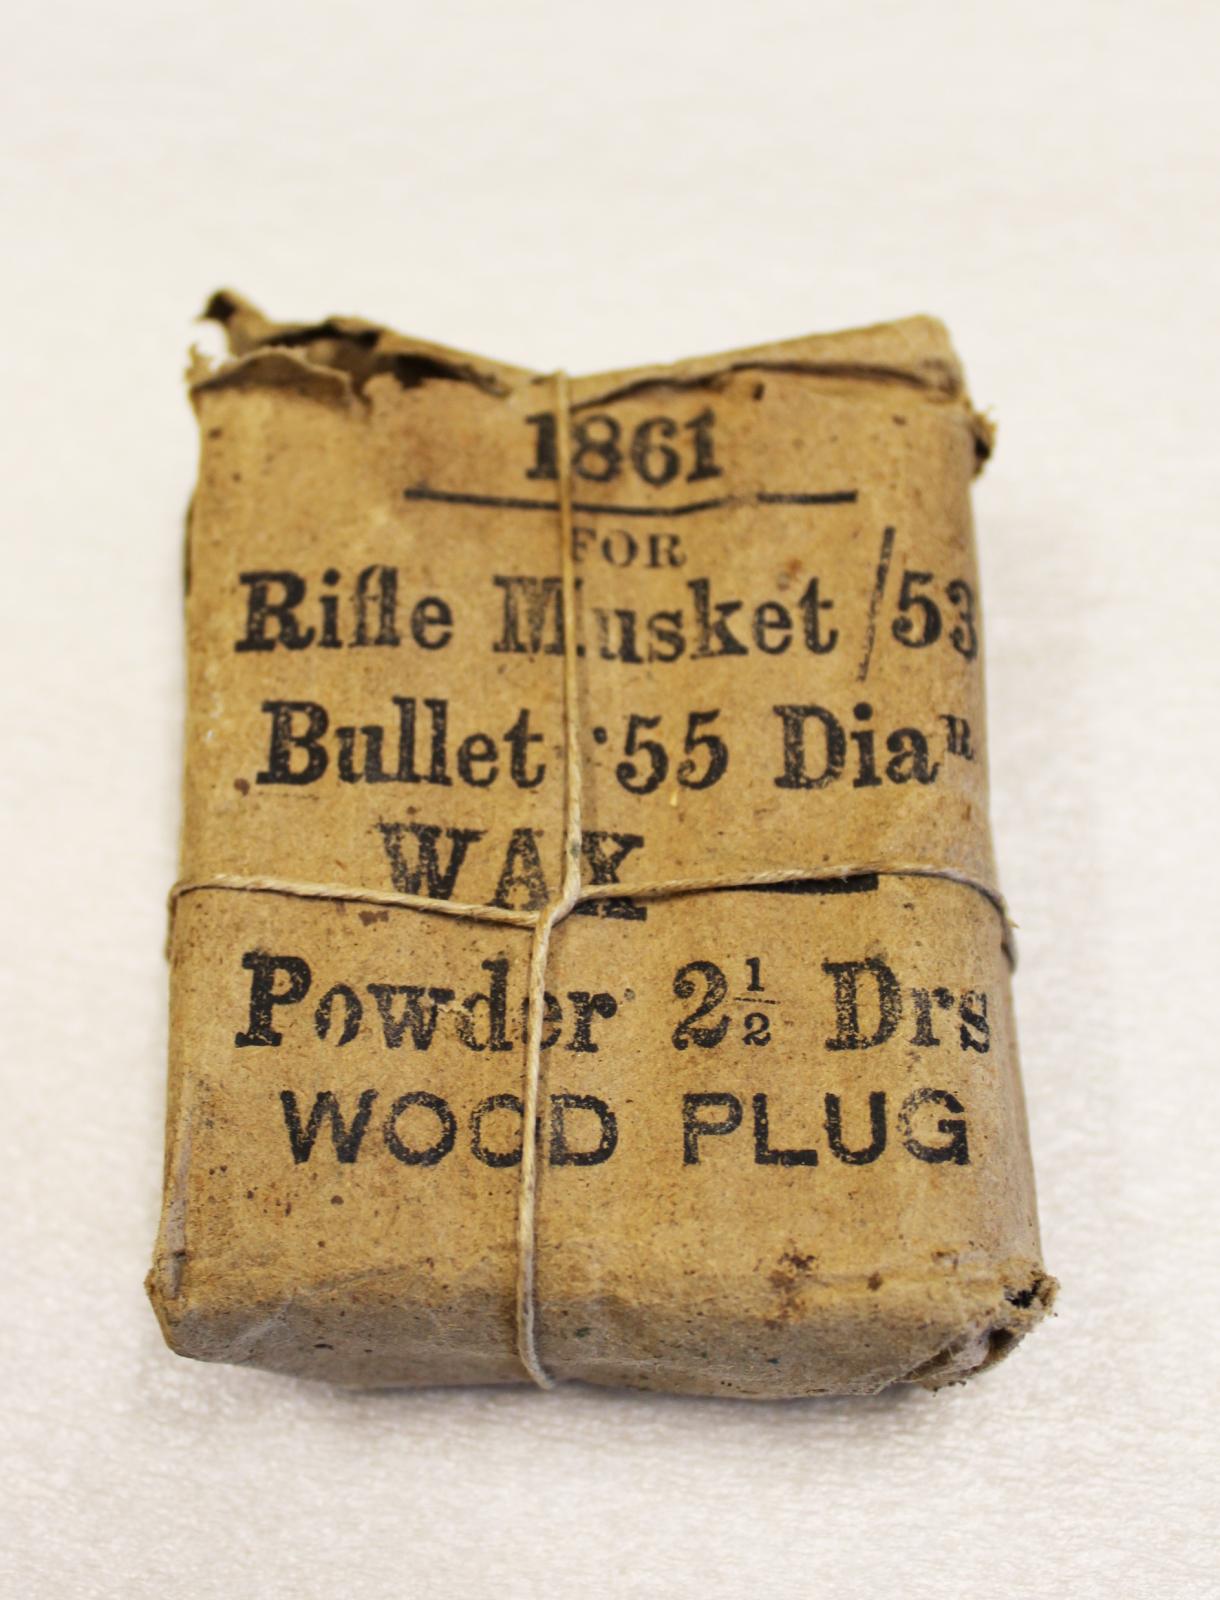 1861
FOR
Rifle Musket /53
Bullet ·55 Diaᴿ
WAX
Powder 2½ Drs
WOOD PLUG